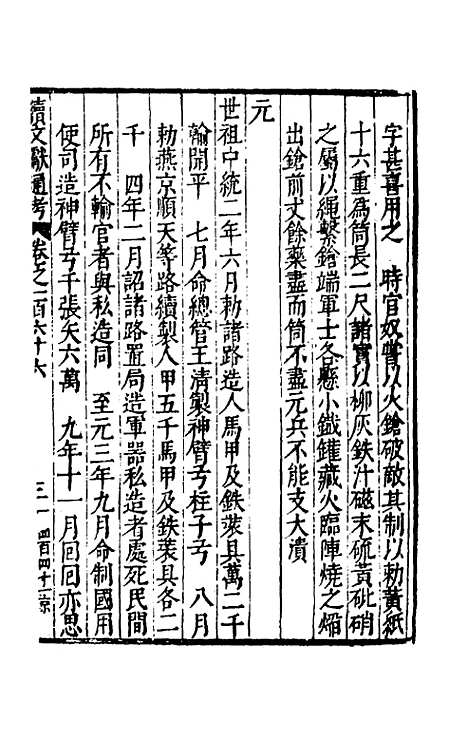 字甚喜用之　時官奴嘗以火鎗破敵其制以勅黃紙
十六重為筒長二尺諸實以柳灰鉄汁磁末硫黃砒硝
之屬以繩繫鎗端軍士各懸小鐵鑵藏火臨陣燒之焰
出鎗前丈餘藥盡而筒不盡元兵不能支大潰
元
世祖中統二年六月勅諸路造人馬甲及鉄裝具萬二千
輸開平　七月命總管王清製神臂弓柱子弓　八月
勅燕京順天等路續製人甲五千馬甲及鉄裝具各二
千　四年二月詔諸路置局造軍器私造者處死民間
所有不輸官者與私造同　至元三年九月命制國用
使司造神臂弓千張矢六萬　九年十一月囘囘亦思
續文獻通考　卷之一百六十六　三一　四百四十二　京